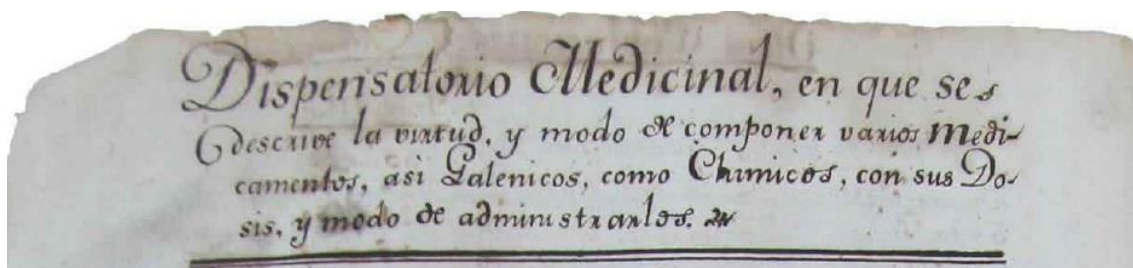 Dispensatorio Medicinal, en que se
descrive la virtud, y modo de componer varios Medi-
camentos, asi Galenicos, como Chimicos, con sus Do-
sis, y modo de administrarlos.